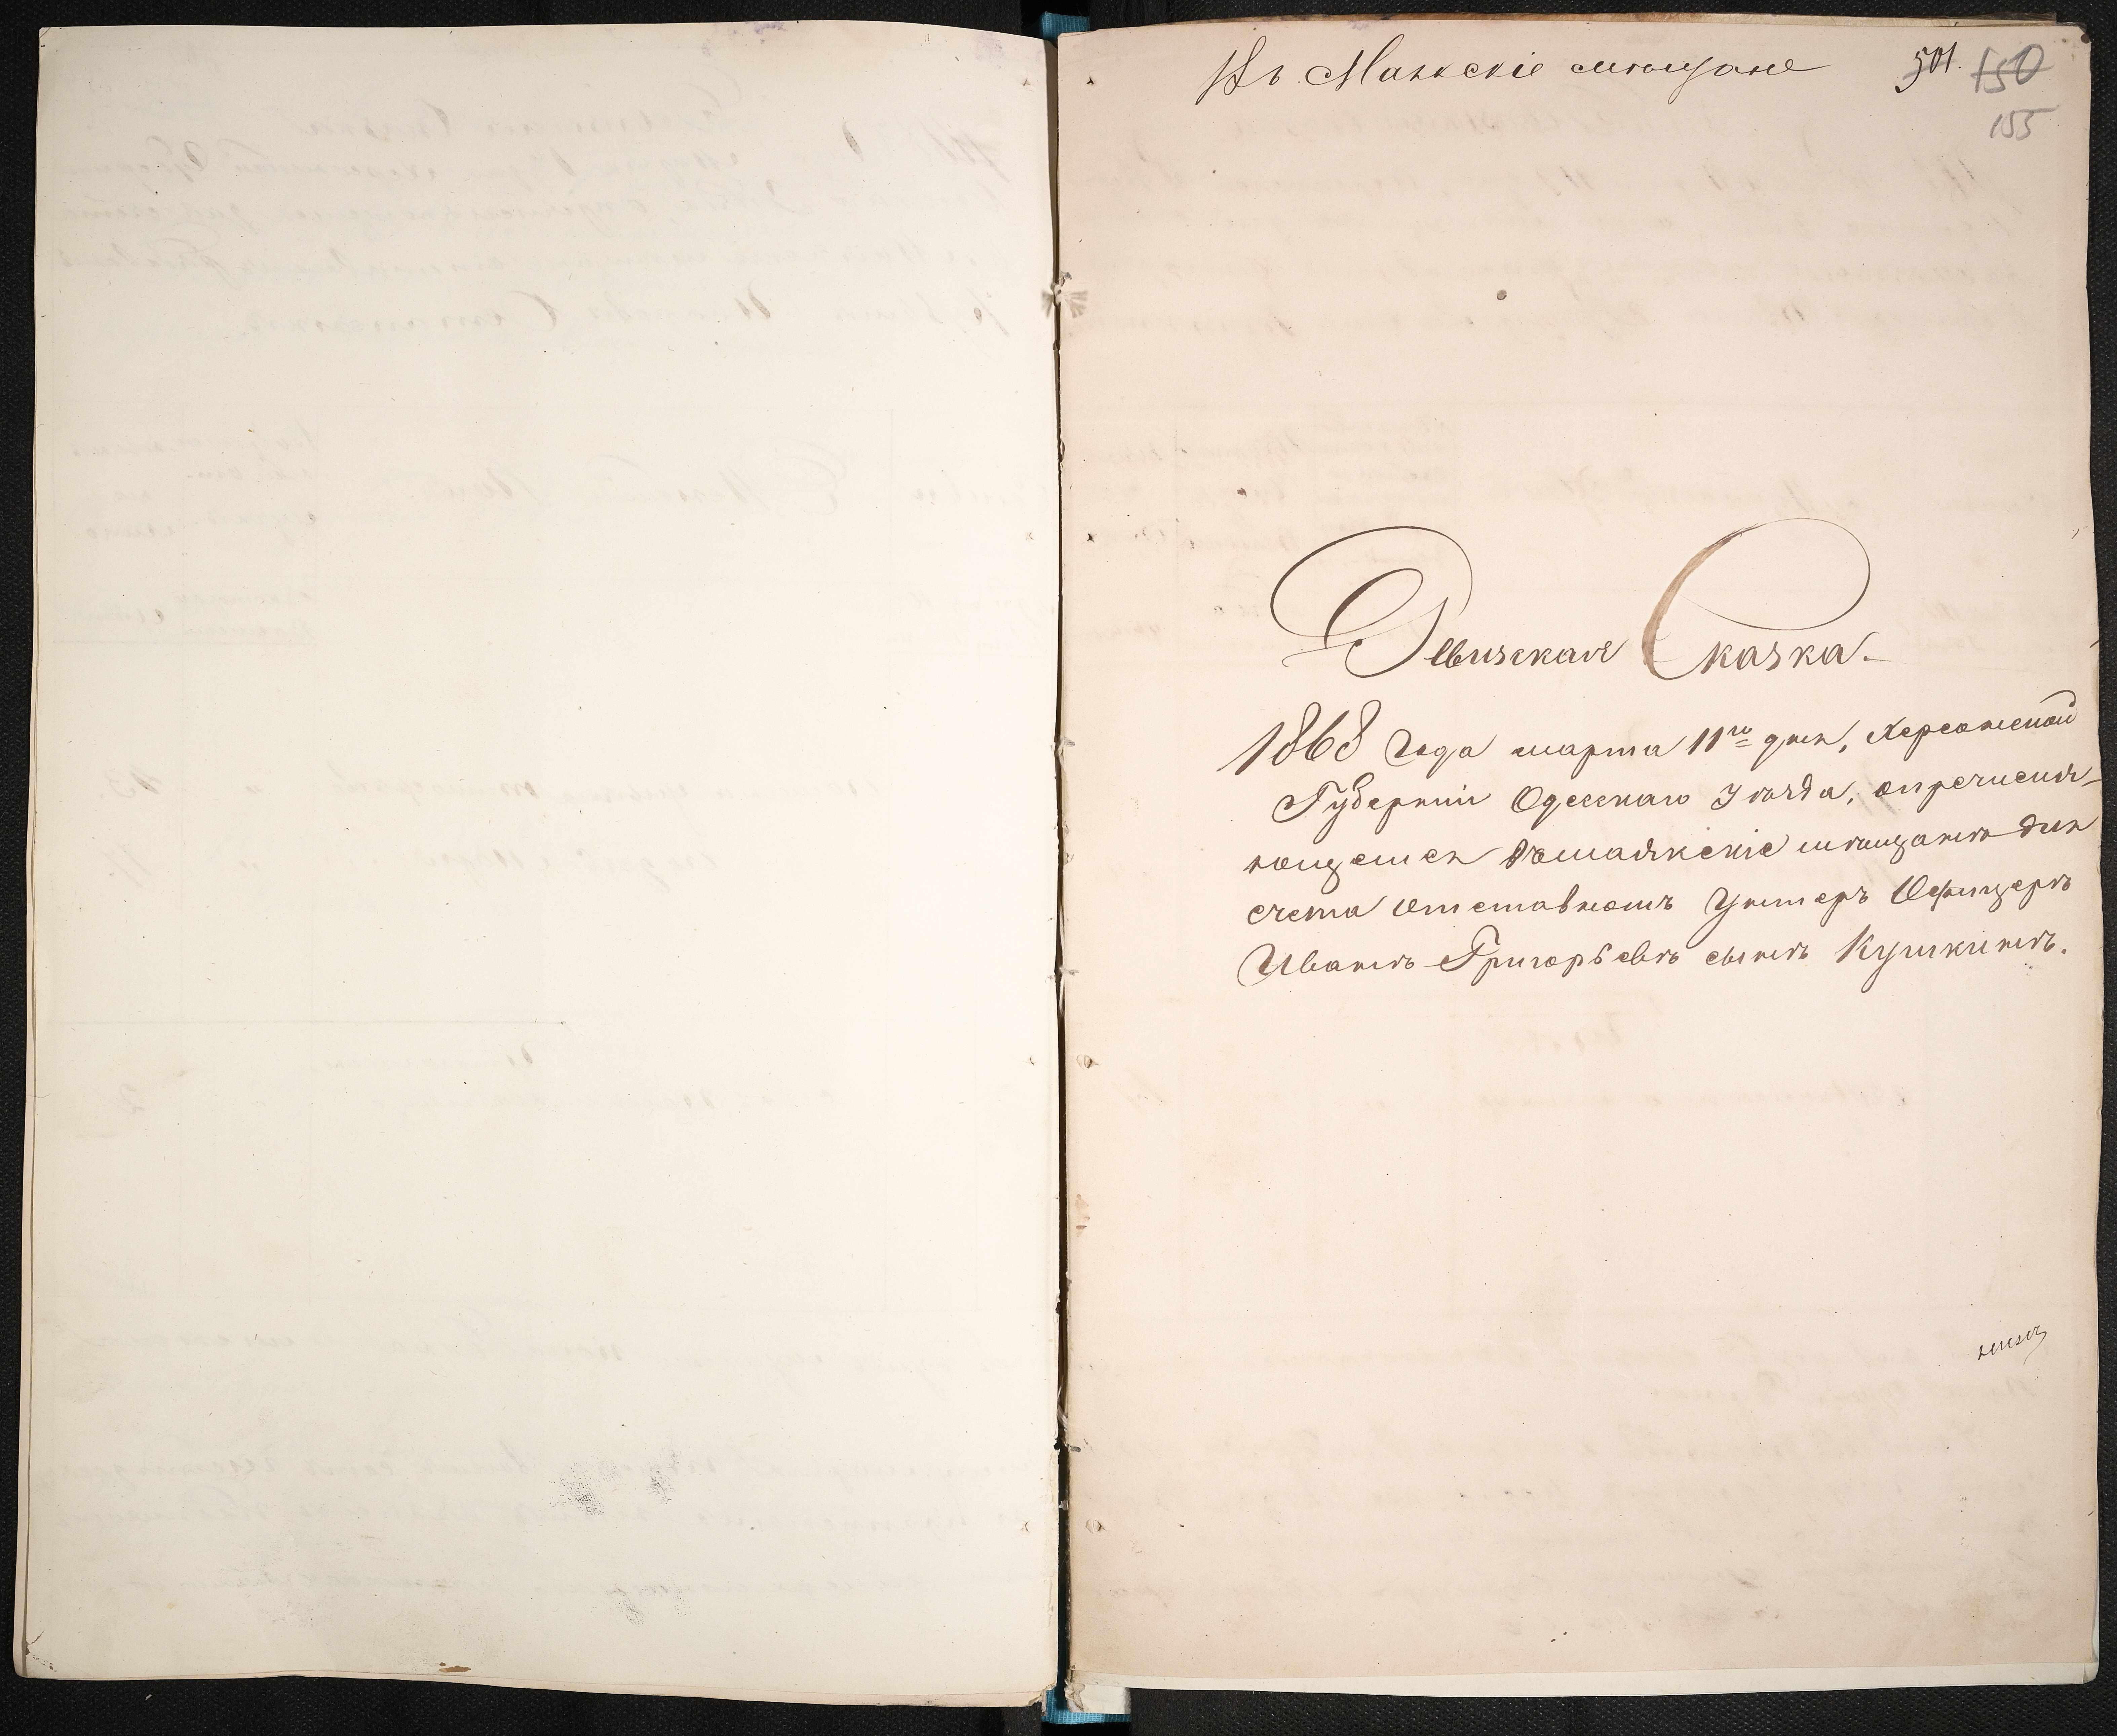 Въ Маякскіе мѣщане 501. 150
155
Ревизская Сказка.
1868 Года марта 11го дня, Херсонской
Губерніи Одесскаго Уѣзда, о перечисля-
ющемся въ маякскіе мѣщанѣ для
счета Отставномъ Унтеръ Офицерѣ
Иванѣ Григорьевѣ сынѣ Кушкинѣ.